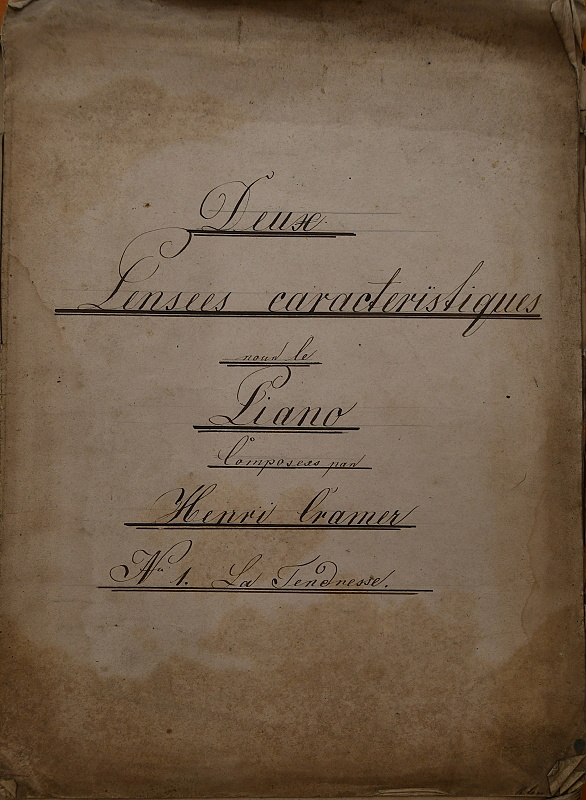 Deux
Pensées caracterïstiques
pour le
Piano
Composées par
Henri Cramer
No 1. La Tendresse.